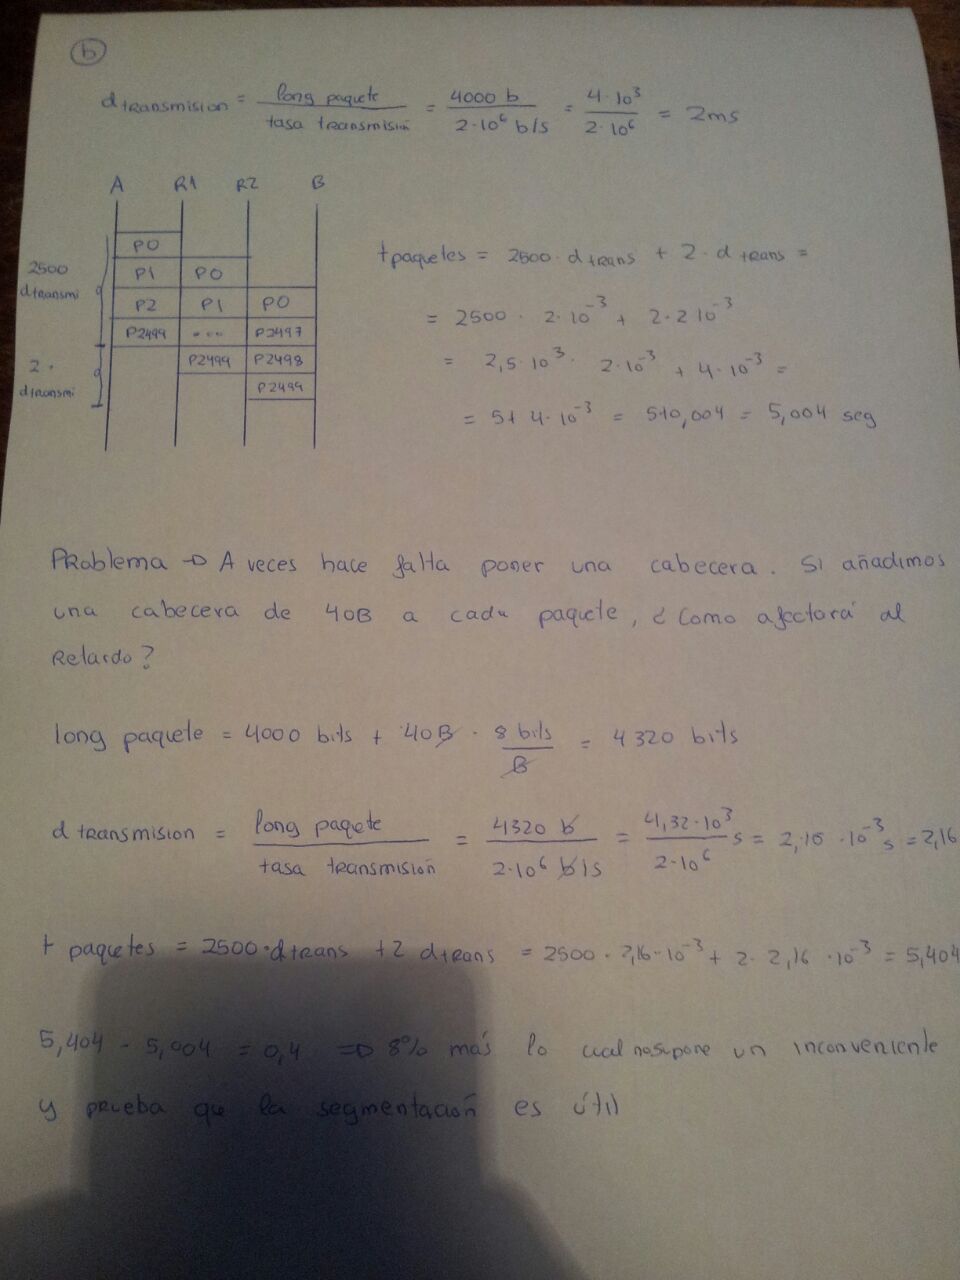 b
d transmision = long paquete / tasa transmisión = 4000 b / 2·10⁶ b/s = 4·10³ / 2·10⁶ = 2ms
A R1 R2 B
P0
2500 dtransmi
P1 P0
P2 P1 P0
P2499 --- P2497
2· dtransmi
P2499 P2498
P2499
t paquetes = 2500·d trans + 2·d trans =
= 2500 · 2·10⁻³ + 2·2 10⁻³
= 2,5·10³· 2·10⁻³ + 4·10⁻³ =
= 5+ 4·10⁻³ = 5+0,004 = 5,004 seg
Problema → A veces hace falta poner una cabecera. Si añadimos
una cabecera de 40B a cada paquete, ¿Como afectará al
Retardo?
long paquete = 4000 bits + 40B · 8 bits / B = 4320 bits
d transmision = long paqete / tasa transmisión = 4320 b / 2·10⁶ b/s = 4,32·10³ / 2·10⁶ s = 2,16 ·10⁻³ s = 2,16
t paquetes = 2500·dtrans +2 dtrans = 2500·2,16·10⁻³ + 2· 2,16 ·10⁻³ = 5,404
5,404 - 5,004 = 0,4 ⇒ 8% más lo cual no supone un inconveniente
y prueba que la segmentación es útil